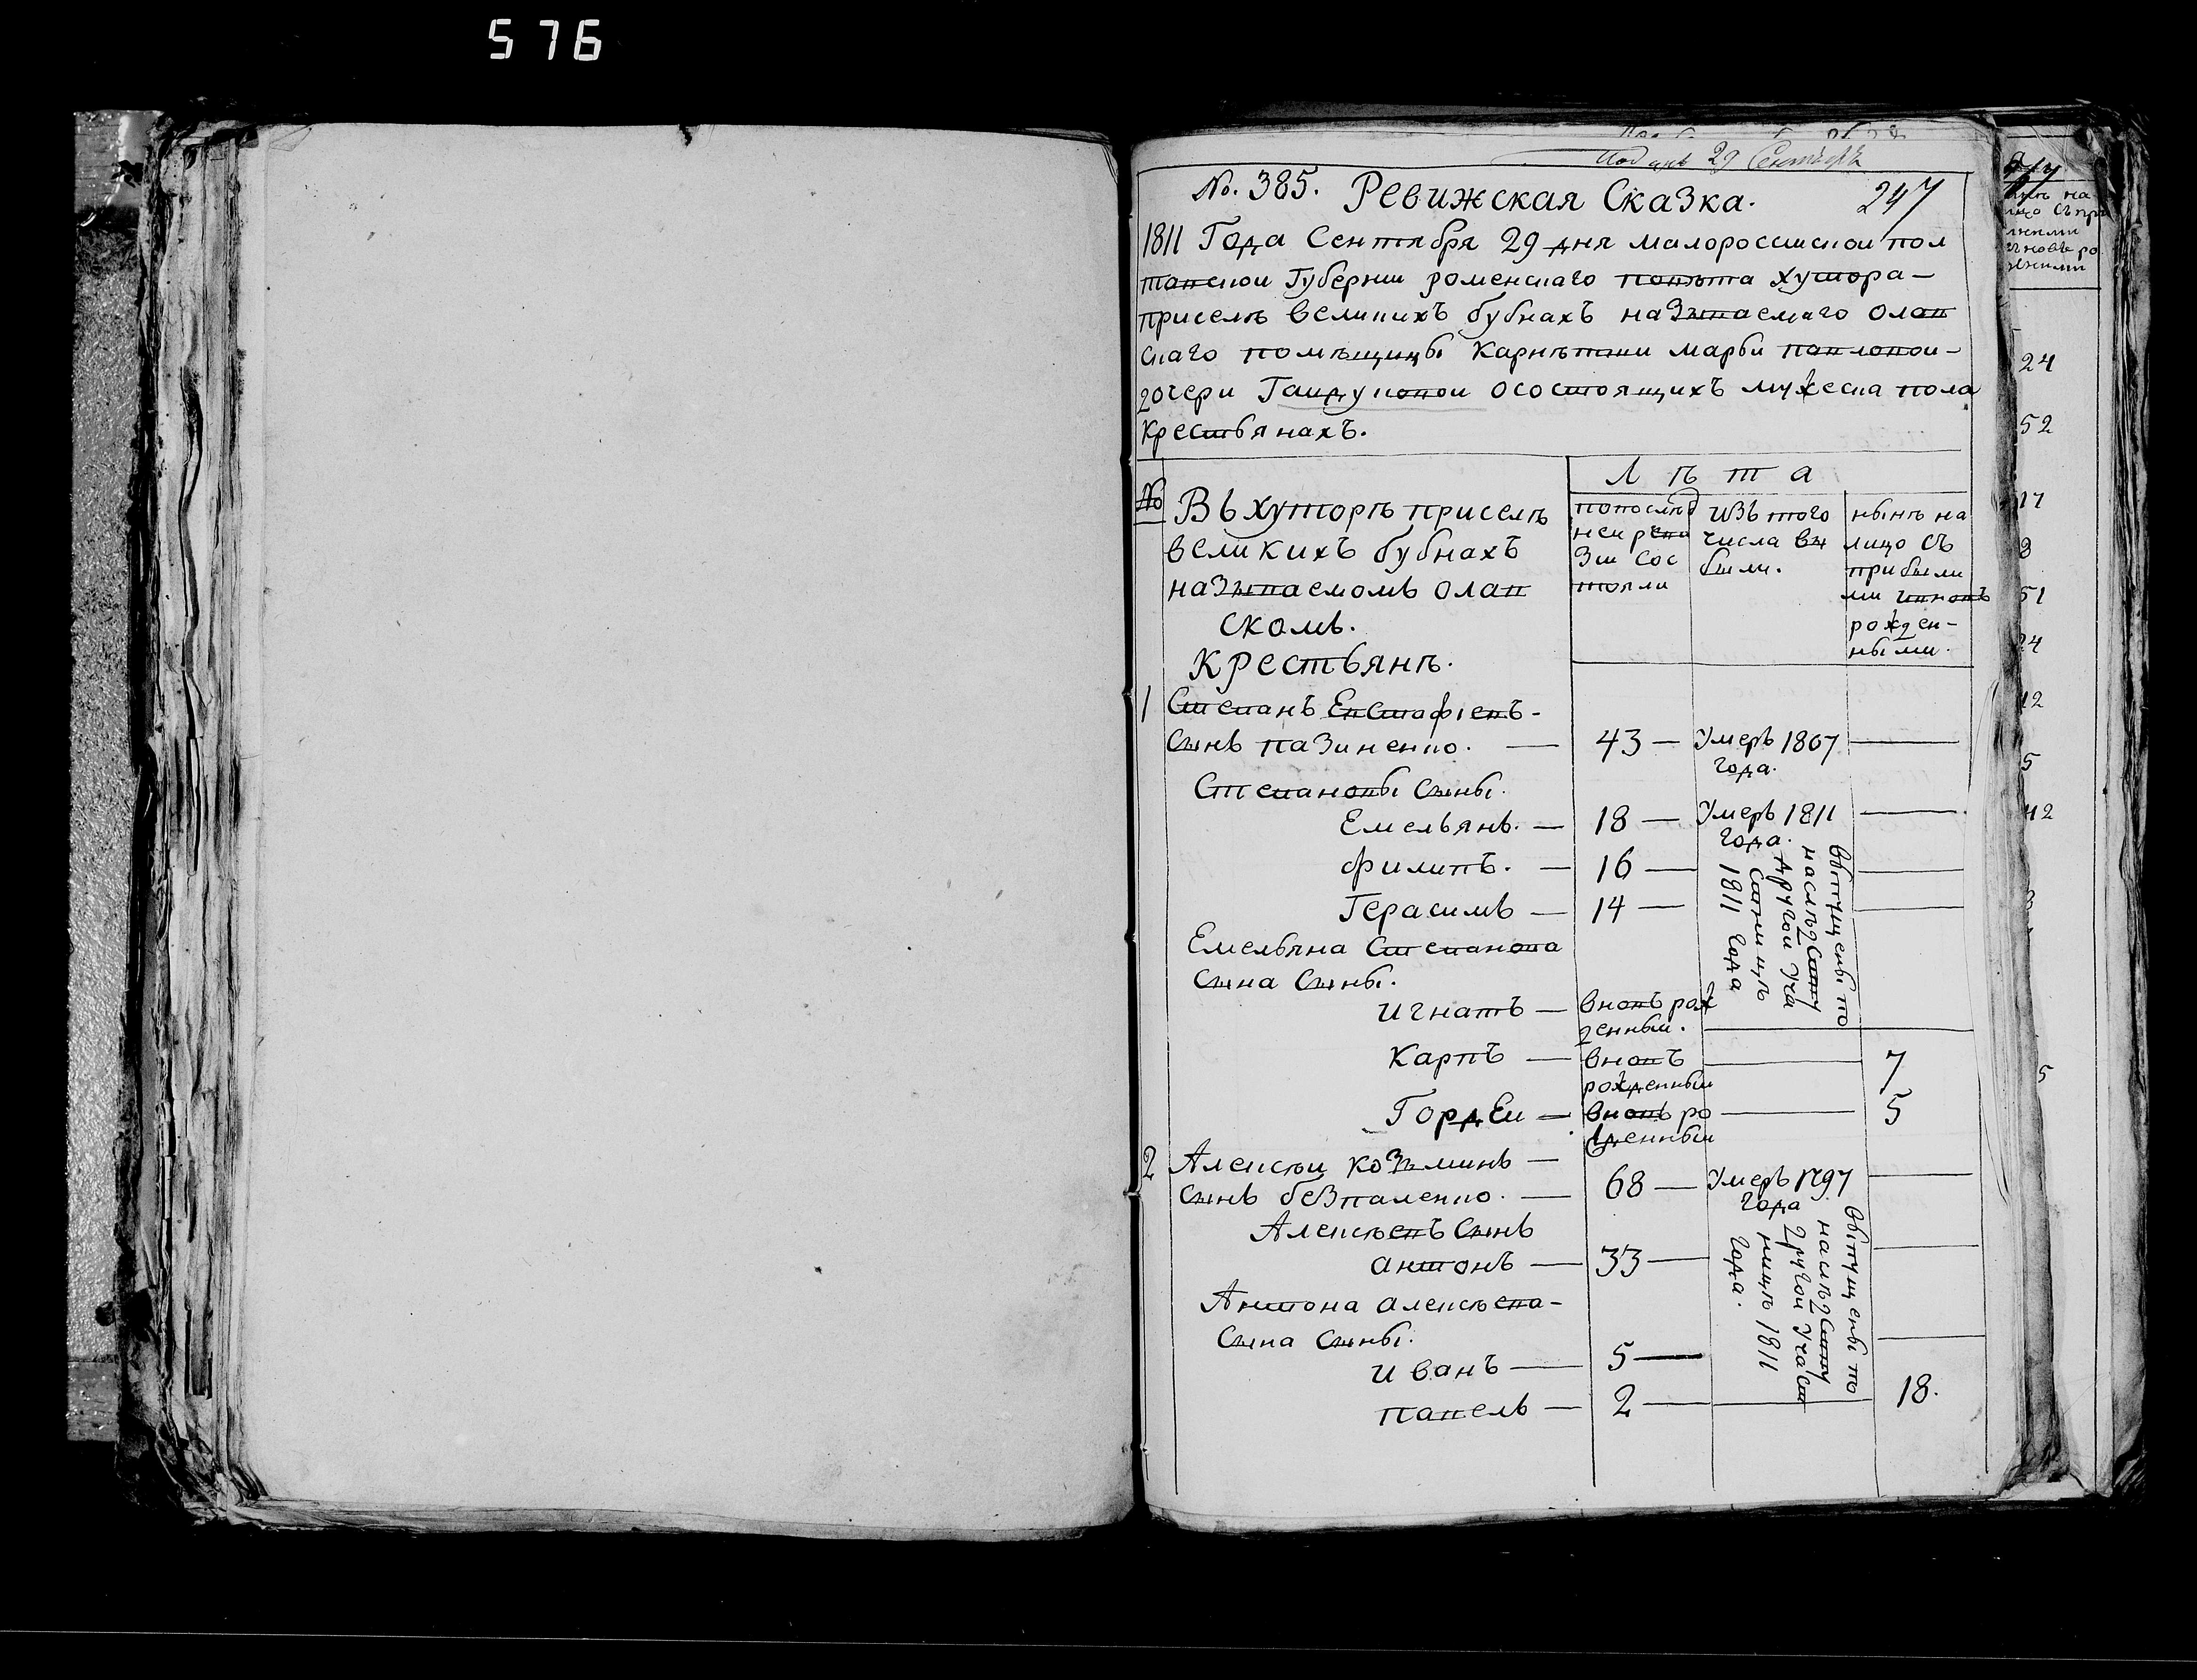 576
29 Сентября
No. 385. Ревижская Сказка. 247
1811 Года Сентября 29 дня малороссискои пол
тавскои Губернии роменскаго повѣта хутора-
приселѣ великихъ бубнахъ называемаго олав
скаго помѣщицы Карнѣтши марьи павловои-
дочери Гаидуковои осостоящихъ мужеска пола
крестьянахъ.
Л ѣ т а
№ Въ хуторѣ приселѣ
великихъ бубнахъ
называемомъ олав
скомъ.
Крестьянъ.
попослѣд
неи реви
зіи сос
тояли
изъ того
числа вы
были.
нынѣ на
лицо съ
прибыли
ми ивновь
рожден-
ными.
1 Степанъ Евстафіевъ-
сынъ пазиненко. — 43 — Умеръ 1807
года.
Степановы сыны.
Емельянъ. — 18 — Умеръ 1811
года.
филипъ. — 16 —
Герасимъ — 14 —
выпущены по
наслѣдству
другои уча
сницѣ
1811 года
Емельяна Степанова
сына сыны.
игнатъ — вновь рож
денныи.
Карпъ — вновь
рожденныи 7
ГордЕи — вновь ро
жденныи 5
2 Алексѣи козъминъ —
сынъ безпаленко. — 68 — Умеръ 1797
года
Алексѣевъ сынъ
антонъ — 33 —
выпущены по
наслѣдству
другои участ
ницѣ 1811
года.
Антона алексѣева-
сына сыны.
иванъ — 5 —
павелъ — 2 — 18.
нынѣ на
24
52
17
8
51
24
12
5
42
3
5